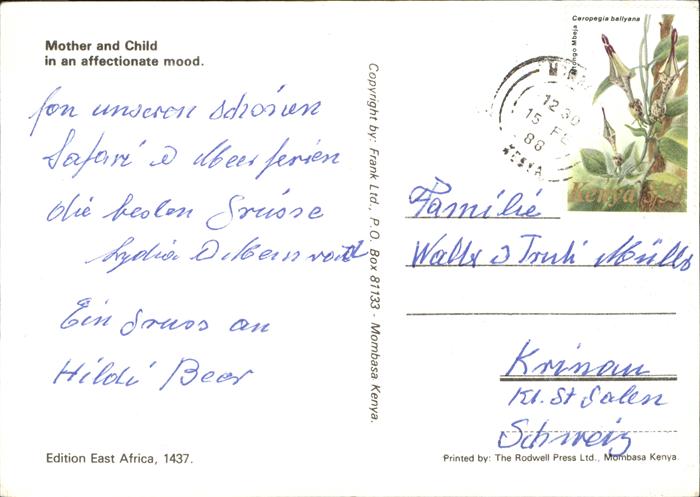 Mother and Child
in an affectionate mood.
von unseren schönen
Safari & Meerferien
die besten Grüsse
Lydia &
Ein Gruss an
Hildi Beer
Edition East Africa, 1437.
Copyright by: Frank Ltd., P.O. Box 81133 - Mombasa Kenya.
Ceropegia ballyana
Mtongo Mbeja
Kenya
1230
15 FE
88
KENYA
Familie
Walter & Trudi Müller
Krinau
Kt. St Galen
Schweiz
Printed by: The Rodwell Press Ltd., Mombasa Kenya.